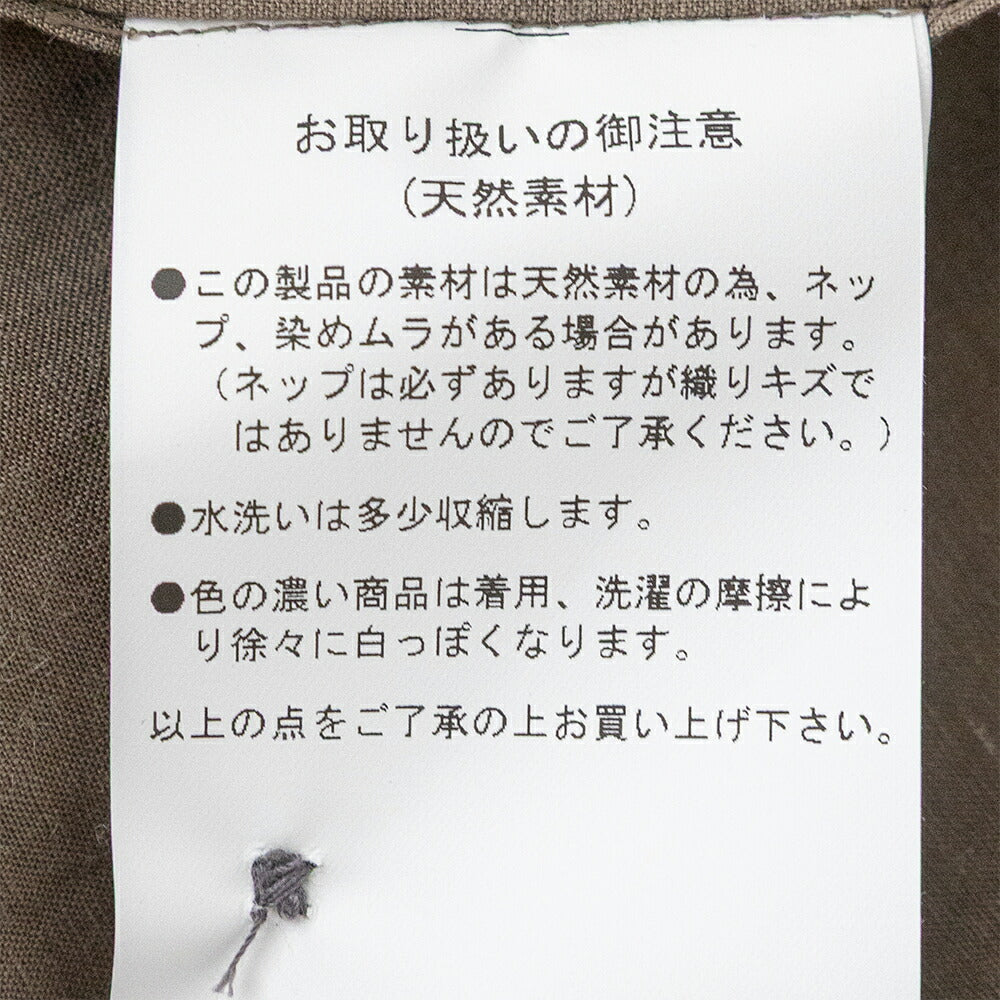 お取り扱いの御注意
(天然素材)
●この製品の素材は天然素材の為、ネッ
プ、染めムラがある場合があります。
(ネップは必ずありますが織りキズで
はありませんのでご了承ください。)
●水洗いは多少収縮します。
●色の濃い商品は着用、洗濯の摩擦によ
り徐々に白っぽくなります。
以上の点をご了承の上お買い上げ下さい。